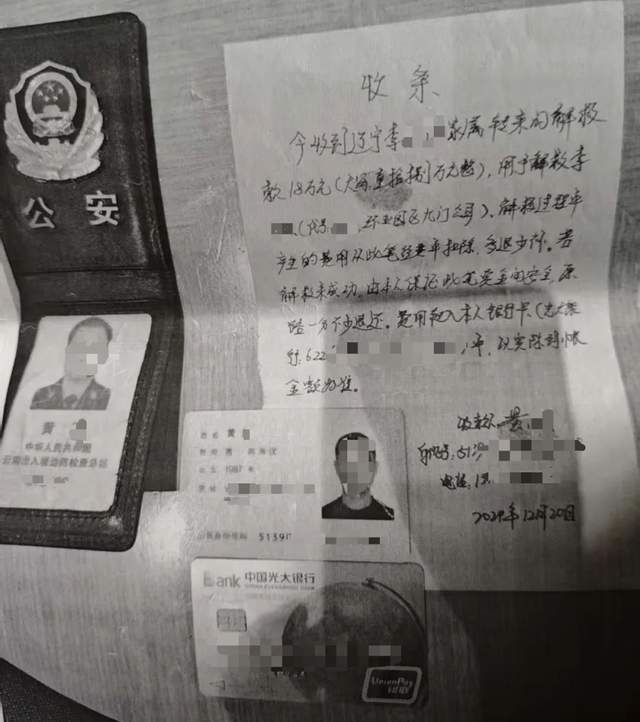 公安
黄
中华人民共和国
云南出入境边防检查总站
收条
今收到辽宁李 家属转来的解救
款18万元(大写:壹拾捌万元整),用于解救李
(代号 ,环亚园区大门交耳)。解救过程中
产生的费用从此笔经费中扣除,多退少补。若
解救未成功,由本人保证此笔资金的安全,原
路一分不少退还。费用转入本人银行卡(光大银
行:622 )中,以实际到账
金额为准。
黄
身份证号:5139
电话:1
2024年12月20日
姓名 黄
性别 男 民族 汉
出生 1987 年
住址
公民身份号码 5139
Bank 中国光大银行
CHINA EVERBRIGHT BANK
UnionPay
银联